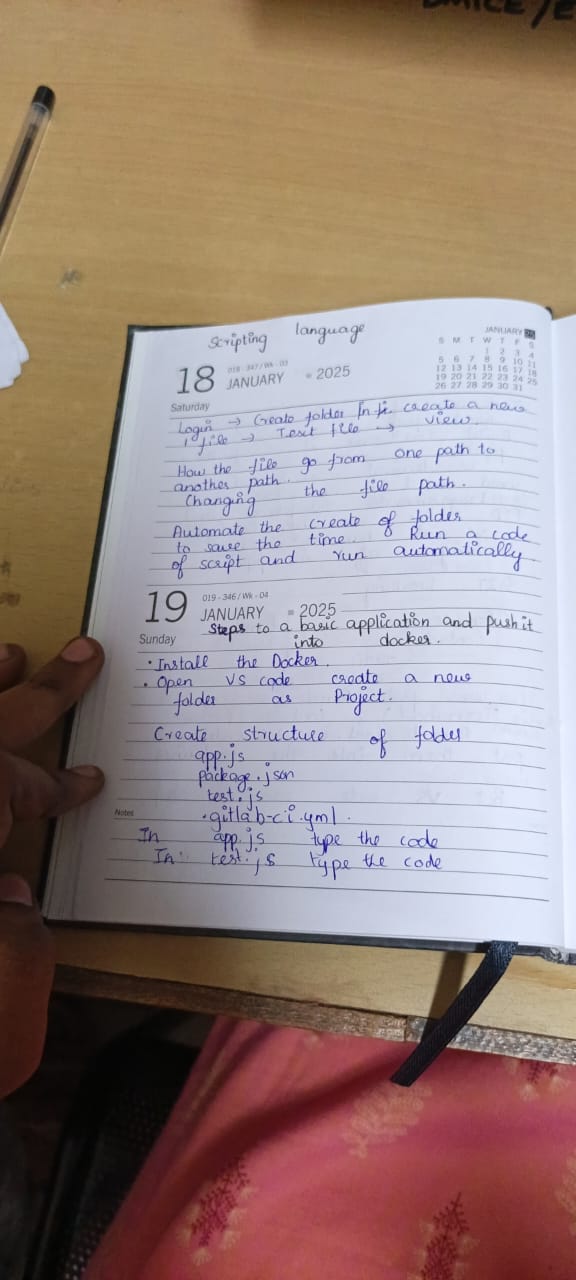 Scripting language
JANUARY 25
S M T W T F S
1 2 3 4
5 6 7 8 9 10 11
12 13 14 15 16 17 18
19 20 21 22 23 24 25
26 27 28 29 30 31
18 018 - 347 / Wk - 03
JANUARY 2025
Saturday
Login → Create folder In it create a new
file → Text file → view.
How the file go from one path to
another path.
Changing the file path.
Automate the create of folder
to save the time. Run a code
of script and run automatically
19 019 - 346 / Wk - 04
JANUARY 2025
Sunday
Steps to a basic application and push it
into docker.
• Install the Docker.
• Open VS code create a new
folder as Project.
Create structure of folder
app.js
package.json
test.js
Notes
.gitlab-ci.yml.
In app.js type the code
In: test.js type the code